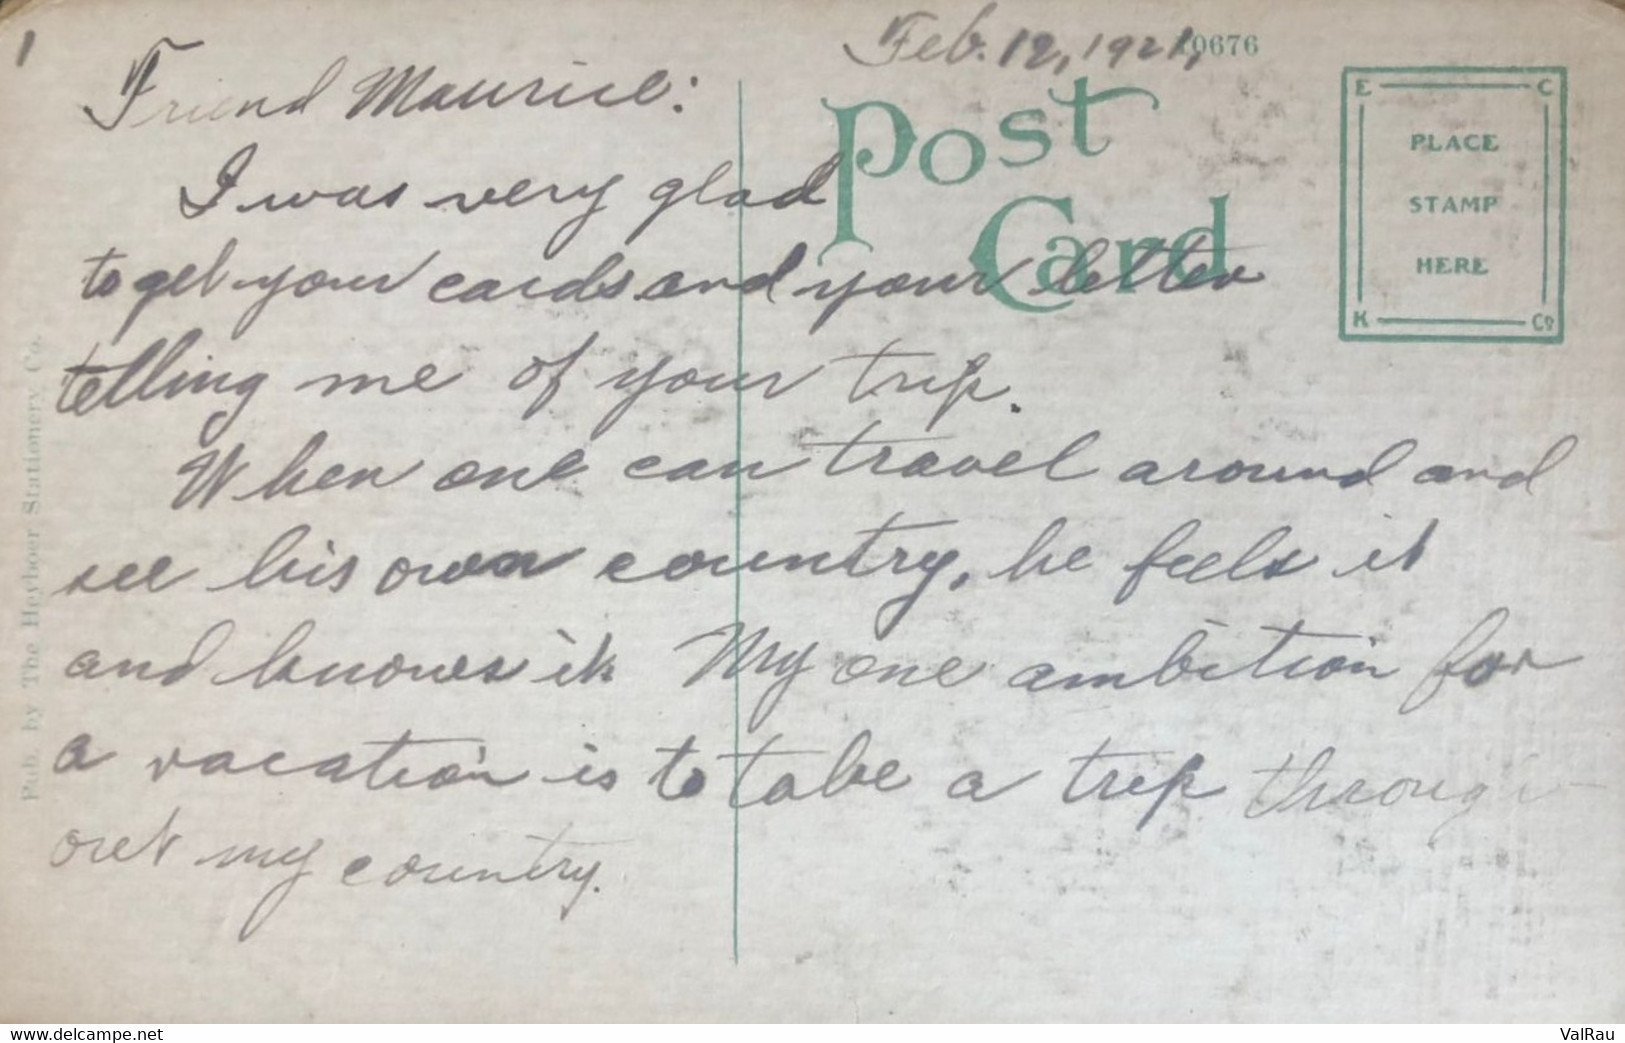 1
Feb. 12, 1921,
10676
Friend Maurice:
POST CARD
E C
PLACE
STAMP
HERE
K Co
I was very glad
to get your cards and your letter
telling me of your trip.
When one can travel around and
see his own country, he feels it
and knows it. My one ambition for
a vacation is to take a trip through-
out my country.
Pub. by The Heyboer Stationery Co.
www.delcampe.net
ValRau